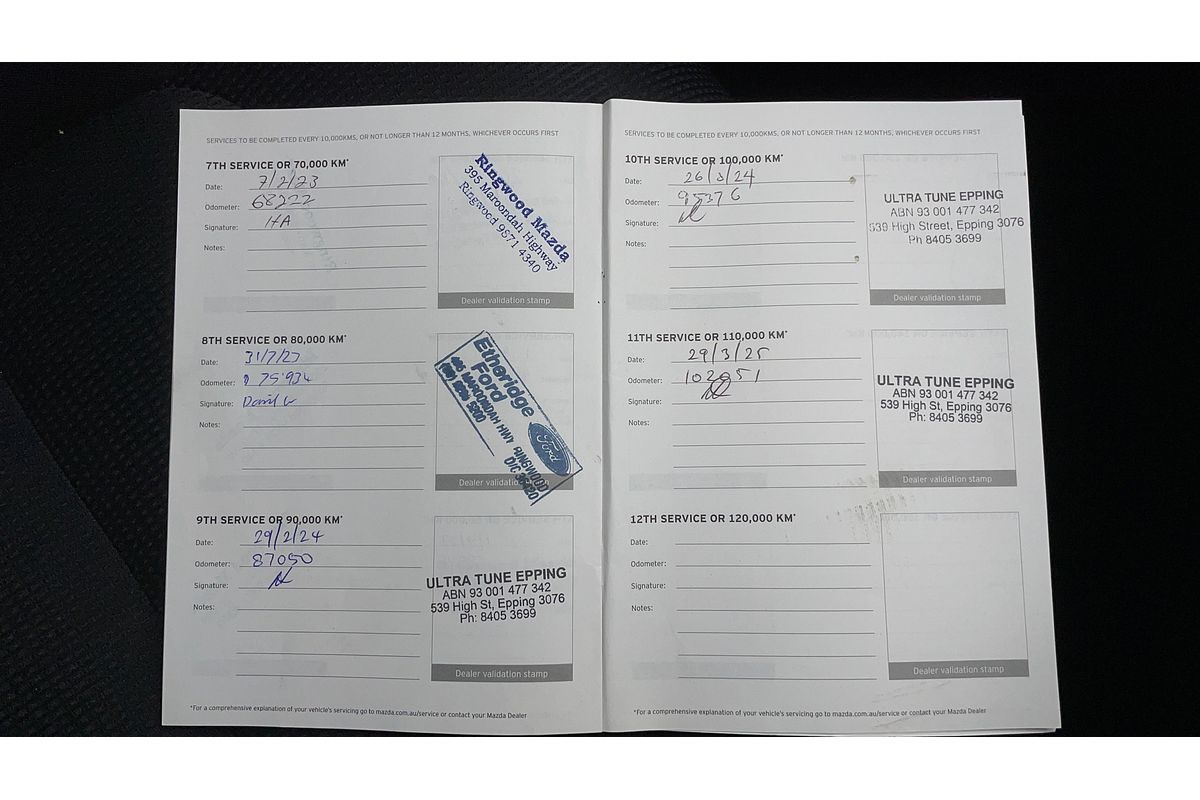 SERVICES TO BE COMPLETED EVERY 10,000KMS, OR NOT LONGER THAN 12 MONTHS, WHICHEVER OCCURS FIRST
7TH SERVICE OR 70,000 KM*
Date: 7/2/23
Odometer: 68222
Signature: HA
Notes:
Ringwood Mazda
395 Maroondah Highway
Ringwood 9871 4340
Dealer validation stamp
8TH SERVICE OR 80,000 KM*
Date: 31/7/23
Odometer: 75934
Signature:
Notes:
Etheridge
Ford
MAROONDAH HWY RINGWOOD
Ford
Dealer validation stamp
9TH SERVICE OR 90,000 KM*
Date: 29/2/24
Odometer: 87050
Signature:
Notes:
ULTRA TUNE EPPING
ABN 93 001 477 342
539 High St, Epping 3076
Ph: 8405 3699
Dealer validation stamp
*For a comprehensive explanation of your vehicle's servicing go to mazda.com.au/service or contact your Mazda Dealer
SERVICES TO BE COMPLETED EVERY 10,000KMS, OR NOT LONGER THAN 12 MONTHS, WHICHEVER OCCURS FIRST
10TH SERVICE OR 100,000 KM*
Date: 26/8/24
Odometer: 95376
Signature:
Notes:
ULTRA TUNE EPPING
ABN 93 001 477 342
539 High Street, Epping 3076
Ph 8405 3699
Dealer validation stamp
11TH SERVICE OR 110,000 KM*
Date: 29/3/25
Odometer:
Signature:
Notes:
ULTRA TUNE EPPING
ABN 93 001 477 342
539 High St, Epping 3076
Ph: 8405 3699
Dealer validation stamp
12TH SERVICE OR 120,000 KM*
Date:
Odometer:
Signature:
Notes:
Dealer validation stamp
*For a comprehensive explanation of your vehicle's servicing go to mazda.com.au/service or contact your Mazda Dealer